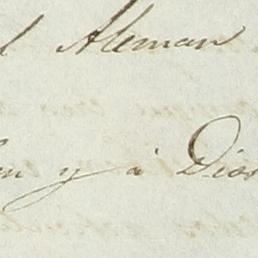 l Aleman
en y á Dios